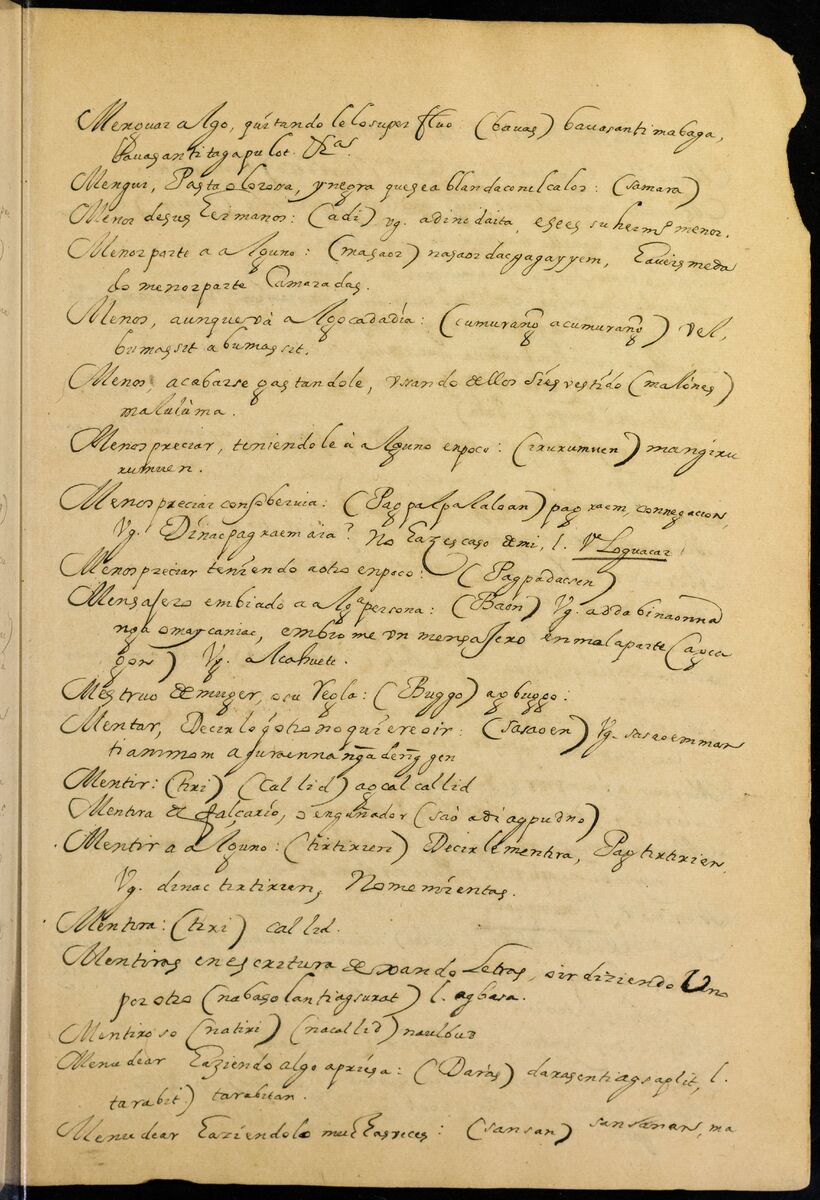 Menguar algo, quitandole lo superfluo. (bauas) bauasanti mabaga,
bauasanti tagapulot. &ca.
Mengui, Pasta olorosa, y negra que sea blanda con el calor: (samara)
Menor de sus hermanos: (adi) vg. adinidaita, ese es su hermo menor.
Menor parte a alguno: (masaor) nasaor dacgagayyem, haueisme da
do menor parte Camaradas.
Menos, aunque và a lgo cada dia: (cumurang̃ acumurang̃) vel,
bumassit abumassit.
Menos, acabarse gastandole, vsando dellos dies vestido (malónes)
malulùma.
Menospreciar, teniendole à alguno en poco: (irurumuen) mangiru
rumuen.
Menospreciar con soberuia: (Pagpalpalaloan) pagraem, con negacion,
Vg. Dinac pagraemaia? No hazes caso de mi, l. Ve Loguacar.
Menospreciar teniendo a otro en poco: (Pagpadacsen)
Mensajero embiado a algª persona: (Baon) Vg. adda binaonna
nga omaycaniac, embiome vn mensajero en mala parte (agca
gon) Vg. alcahuete.
Mestruo de muger, o su regla: (Buggo) agbuggo:
Mentar, Decirlo q̃ otro no quiere oir: (sasaoen) Vg. sasaoemman
tiammom aguraenna ng̃a deng̃gen
Mentir: (tiri) (Callid) agcalcallid
Mentira de falçario, o engañador (saò adi agpudno)
Mentir a alguno: (tirtirien) Decirle mentira, Pagtirtirien,
Vg. dinac tirtirien, No me mientas.
Mentira: (tiri) callid.
Mentiras en escritura dexando Letras, o ir diziendo Uno
por otro (nabasolantiagsurat) l. agbasa.
Mentiroso (natiri) (nacallid) naulbud
Menudear haziendo algo apriesa: (Daràs) darasentiagsaplit, l.
tarabit) tarabitan.
Menudear haziendolo muchas veces: (sansan) sansanan, ma